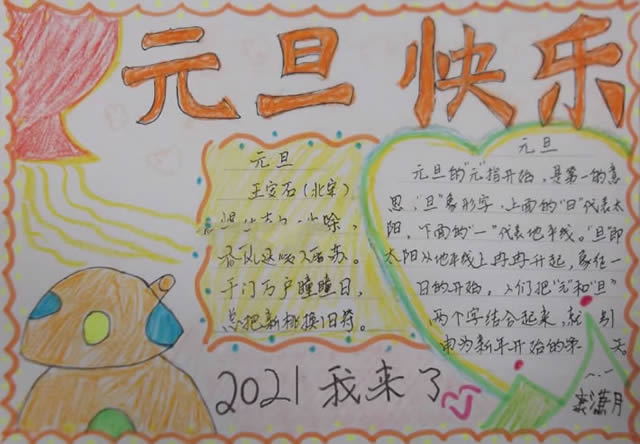 元旦快乐
元旦
王安石(北宋)
春风送暖入屠苏。
千门万户曈曈日,
总把新桃换旧符。
元旦
元旦的"元"指开始,是第一的意
思,"旦"象形字,上面的"日"代表太
阳,下面的"一"代表地平线。"旦"即
太阳从地平线上冉冉升起,象征一
日的开始,人们把"元"和"旦"
两个字结合起来,就
申为新年开始的第 天。
2021我来了